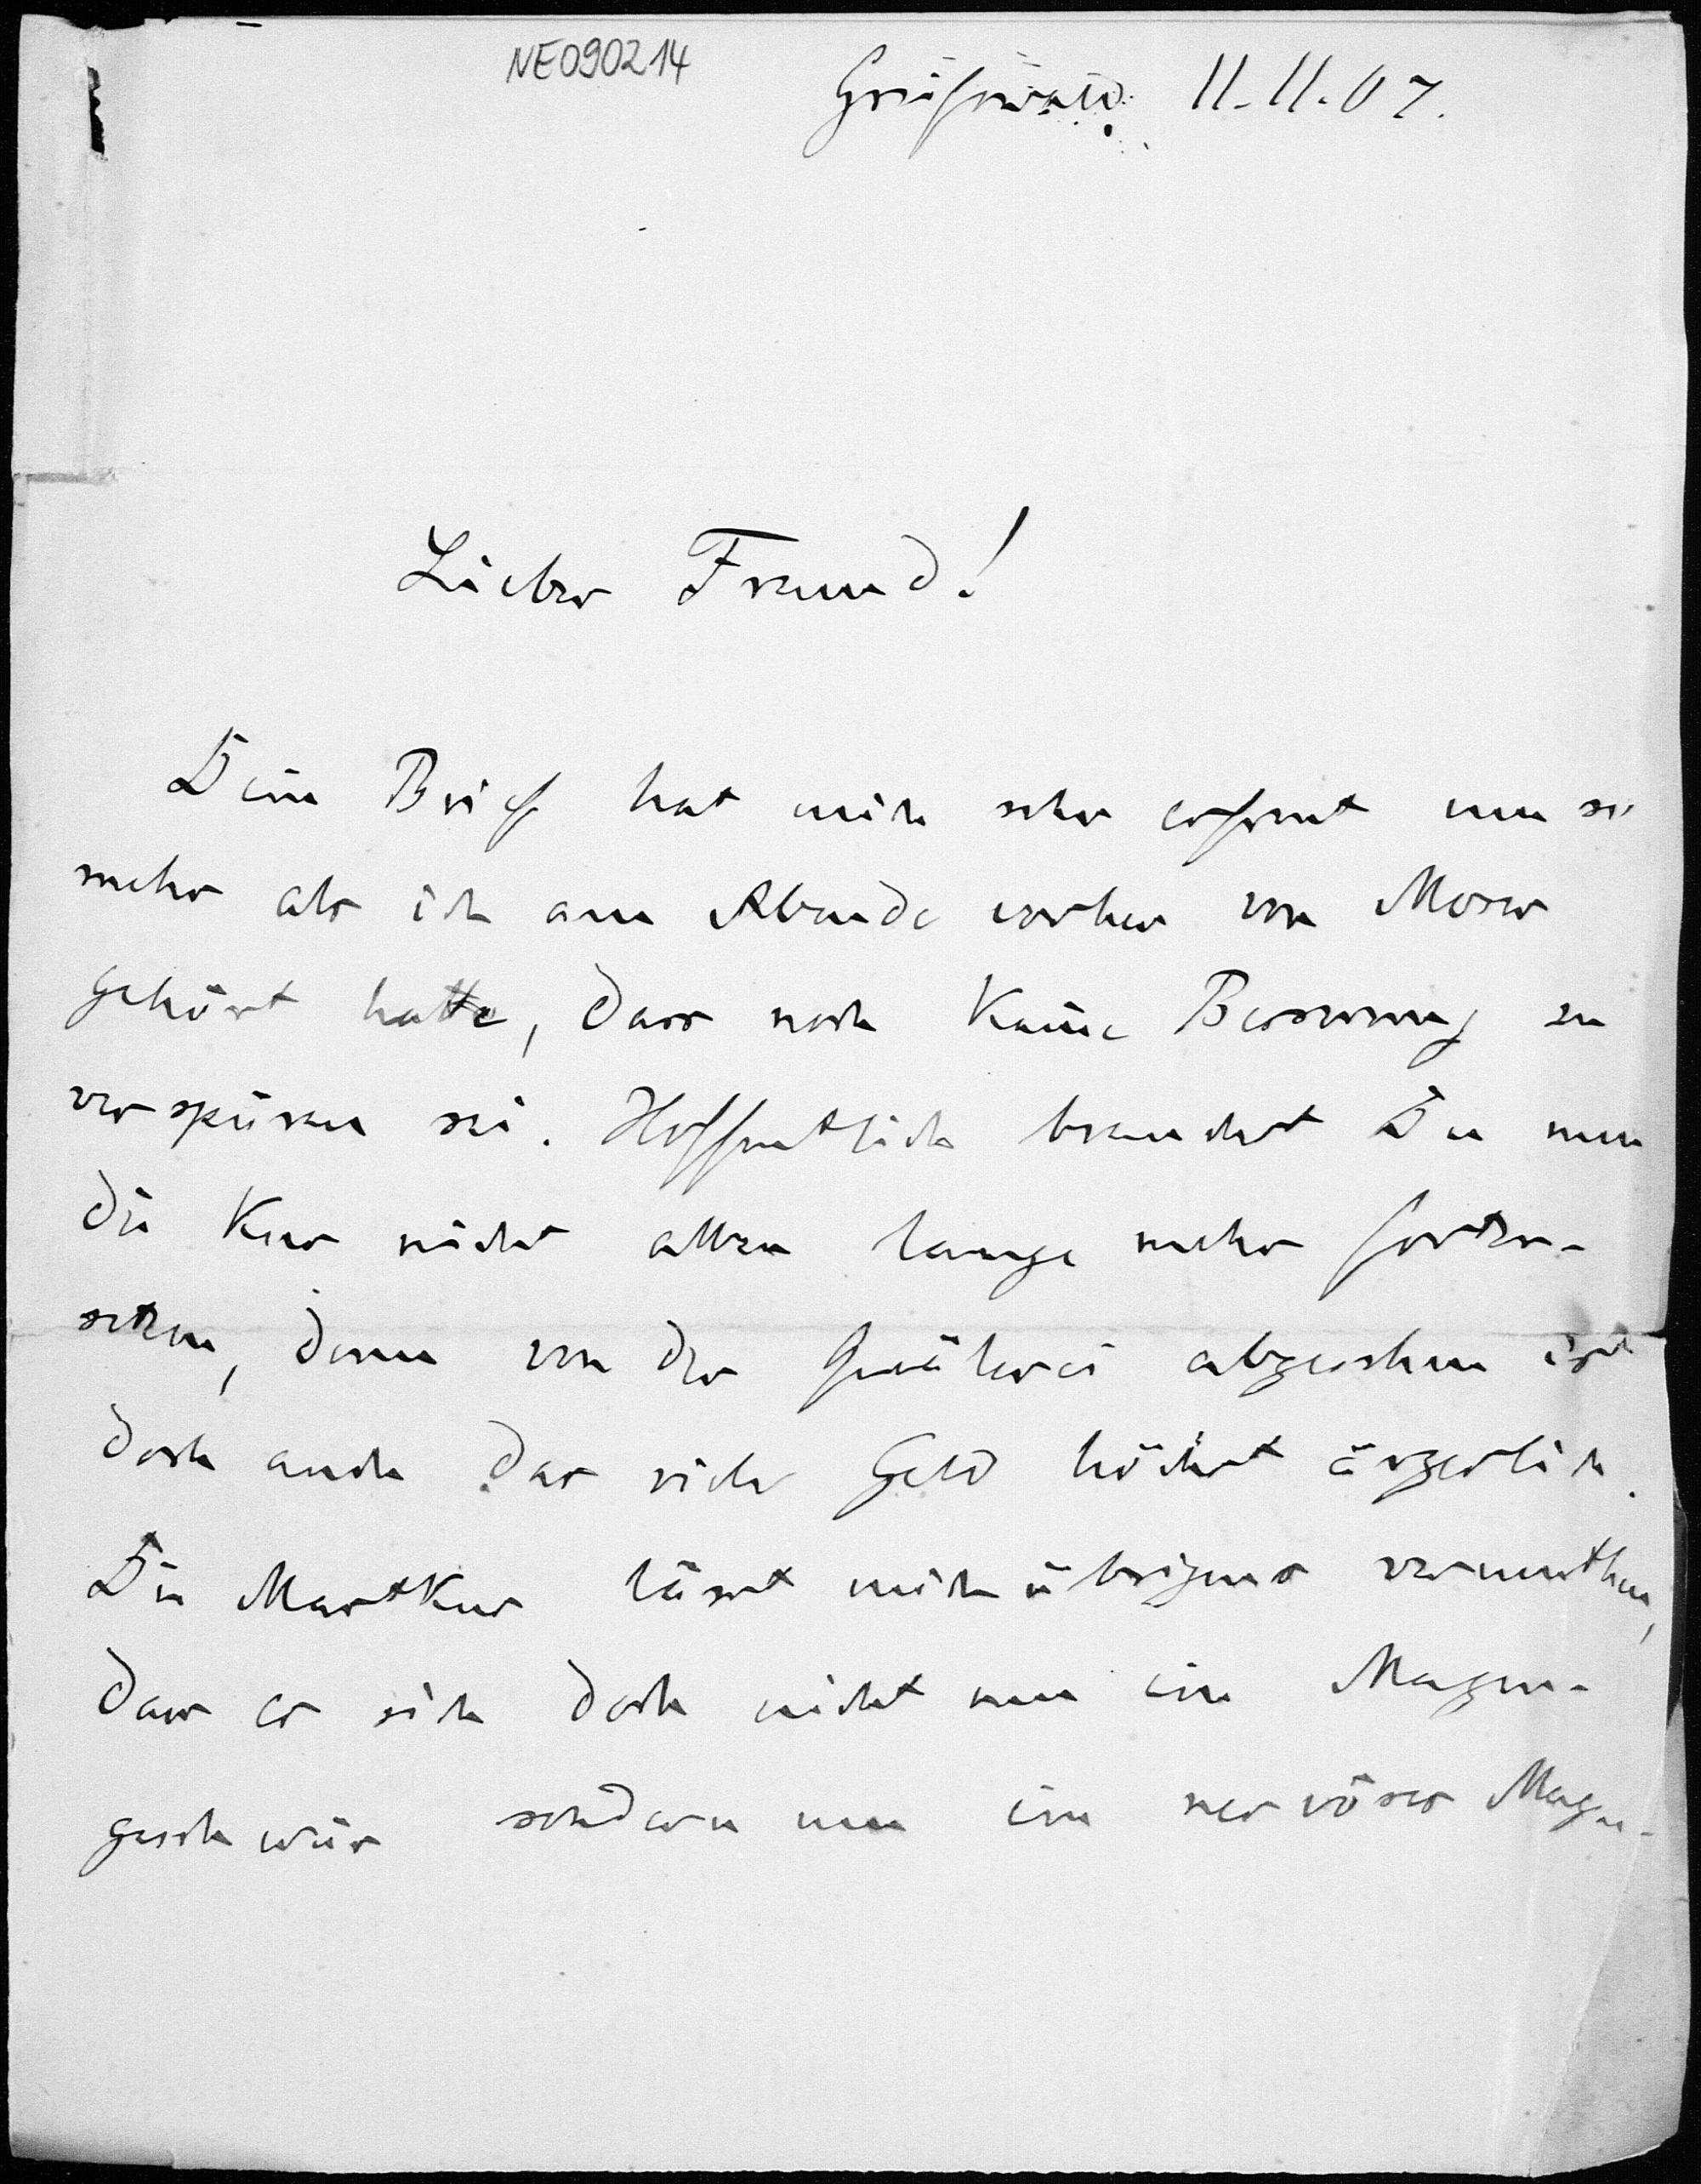 NE090214
Greifswald. 11.11.07.
Lieber Freund!
Dein Brief hat mich sehr erfreut um so
mehr als ich am Abende vorher von Moser
gehört hatte, dass noch keine Besserung zu
verspüren sei. Hoffentlich brauchst Du nun
die Kur nicht allzu lange mehr fortzu-
setzen, denn von der Quälerei abgesehen ist
doch auch das viele Geld höchst ärgerlich.
Die Mastkur lässt mich übrigens vermuthen,
dass es sich doch nicht um ein Magen-
geschwür sondern um ein nervöses Magen-